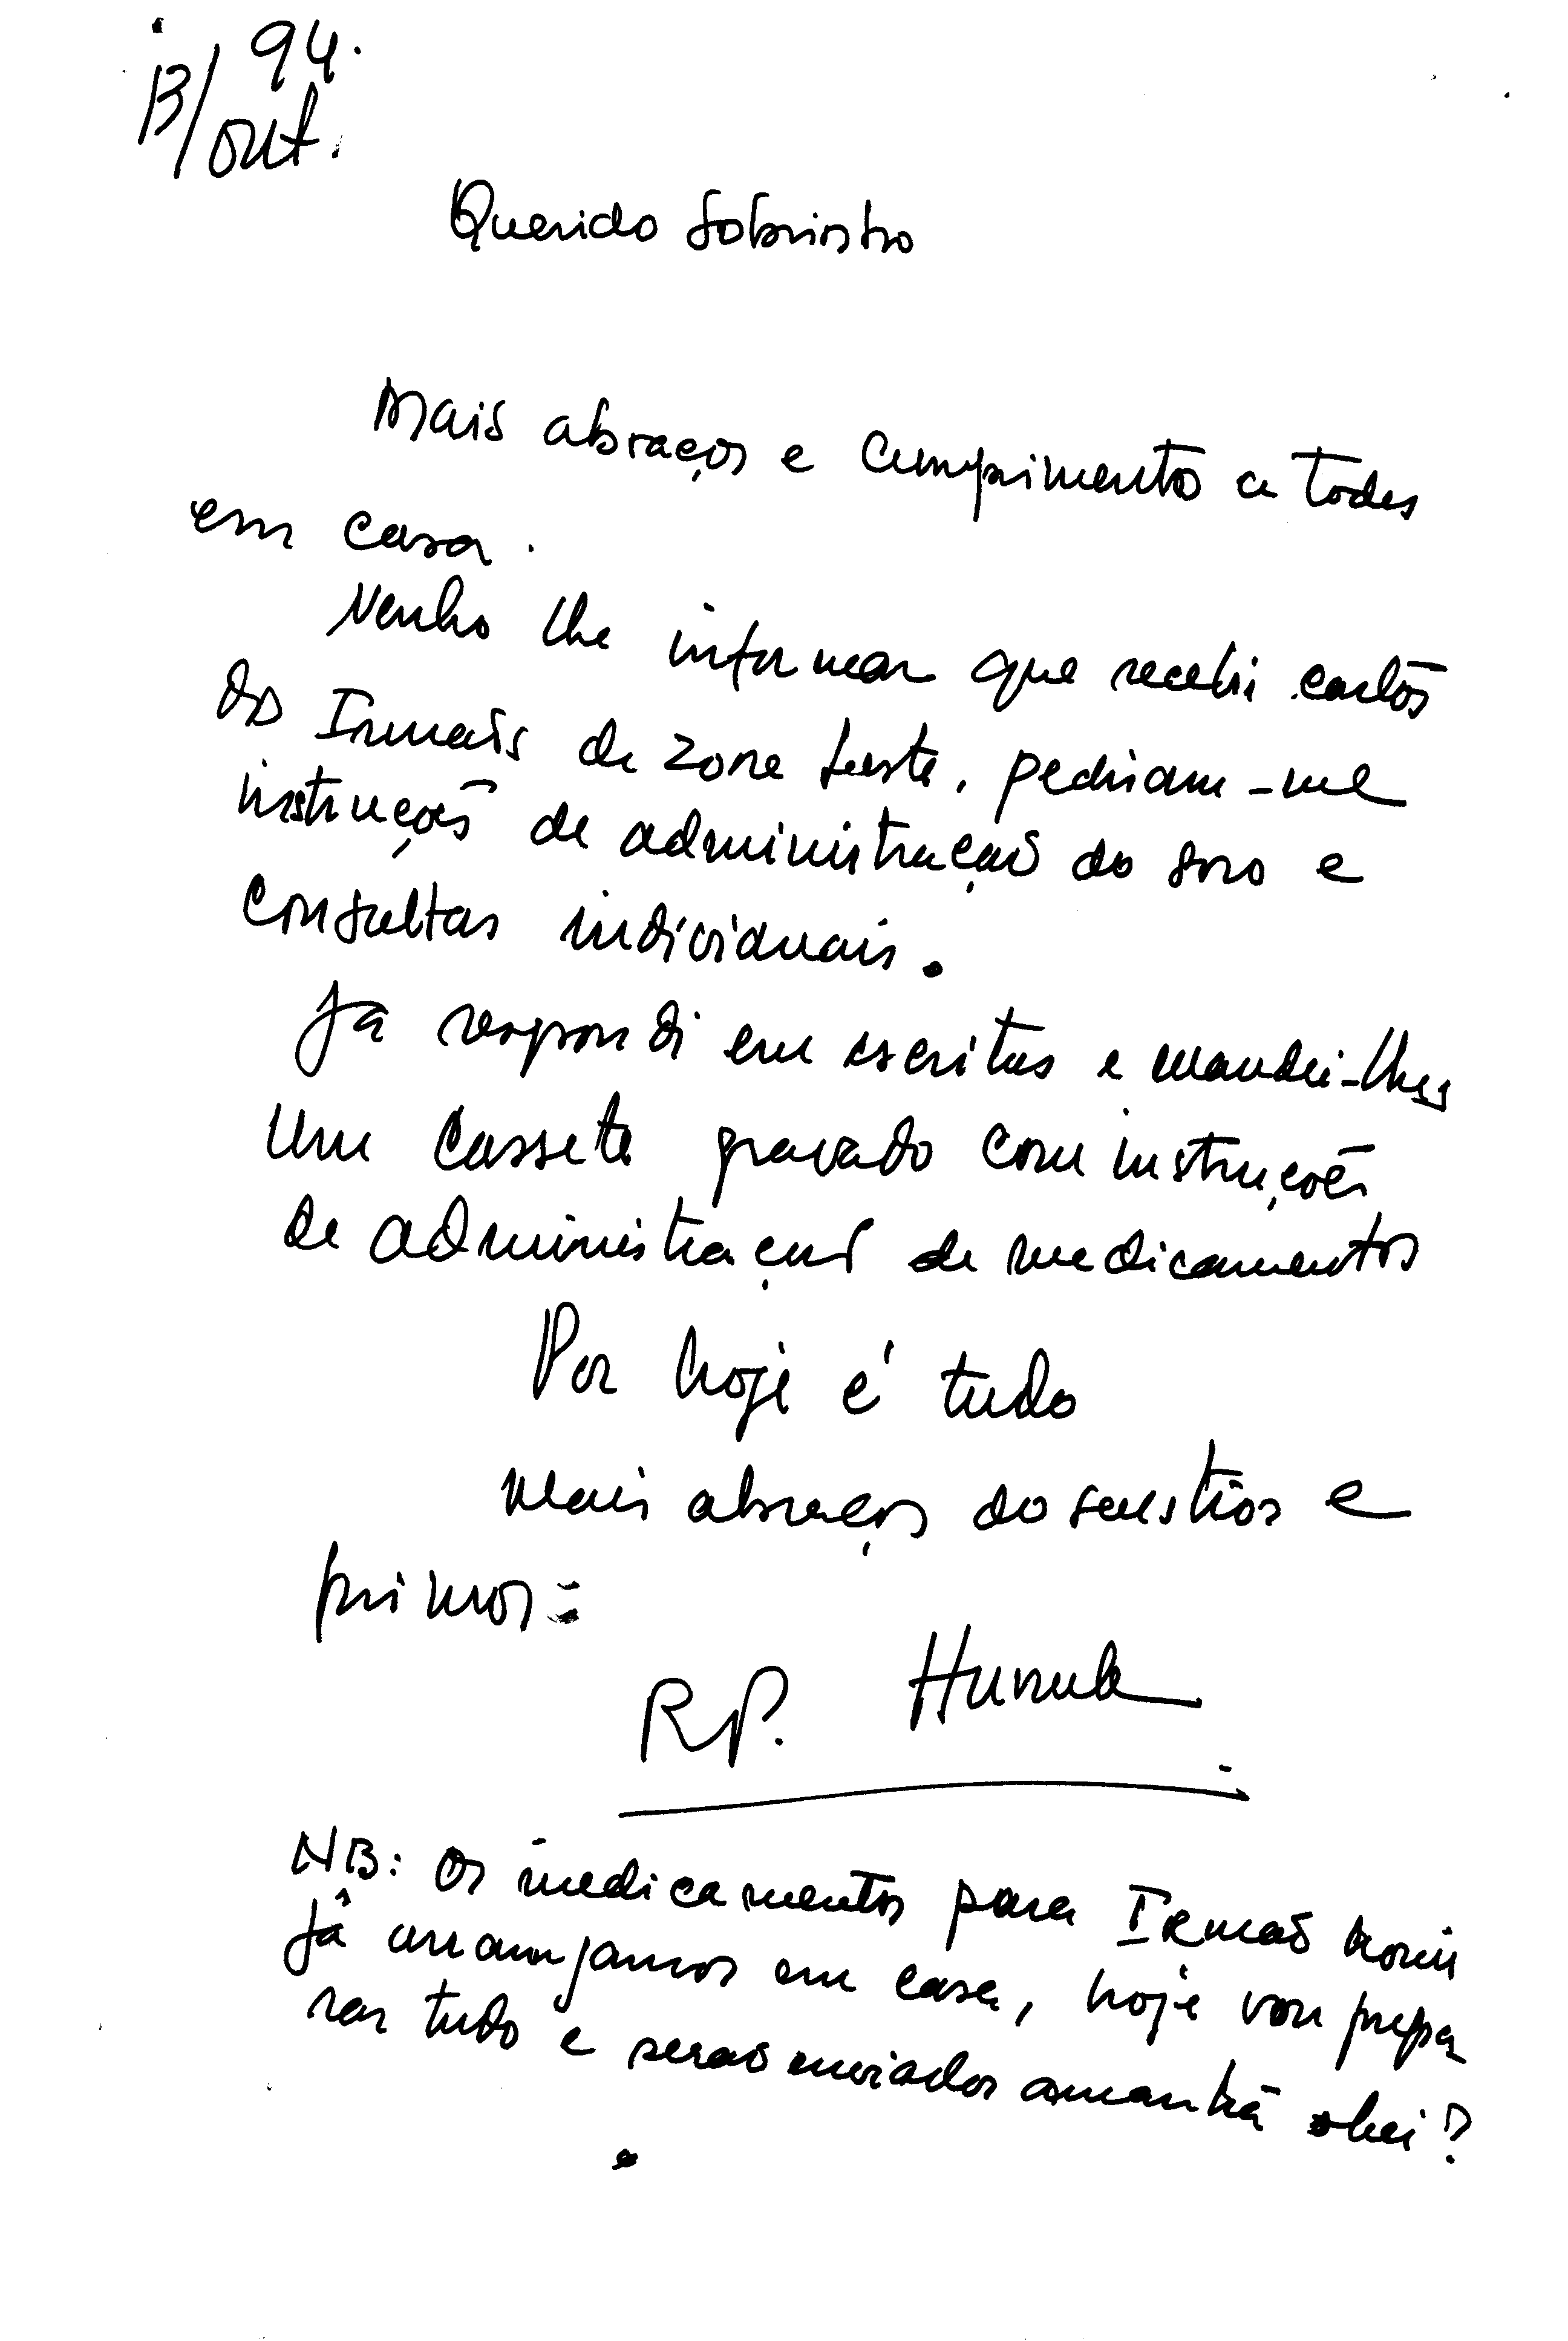 13/out. 94.
Querido Sobrinho
Mais abraços e cumprimento a todos
em casa.
Venho lhe informar que recebi cartões
dos Irmãis de zona Leste, pediam-me
instruções de administração do soro e
consultas individuais.
Já respondi em escritas e mandei-lhes
um cassete gravado com instruções
de administração de medicamentos
Por hoje é tudo
Mais abraços do seus tios e
primos =
R.P.
NB: Os medicamentos para Irmão
Já arranjamos em casa, hoje vou prepa
rar tudo e serão enviados amanhã okei?